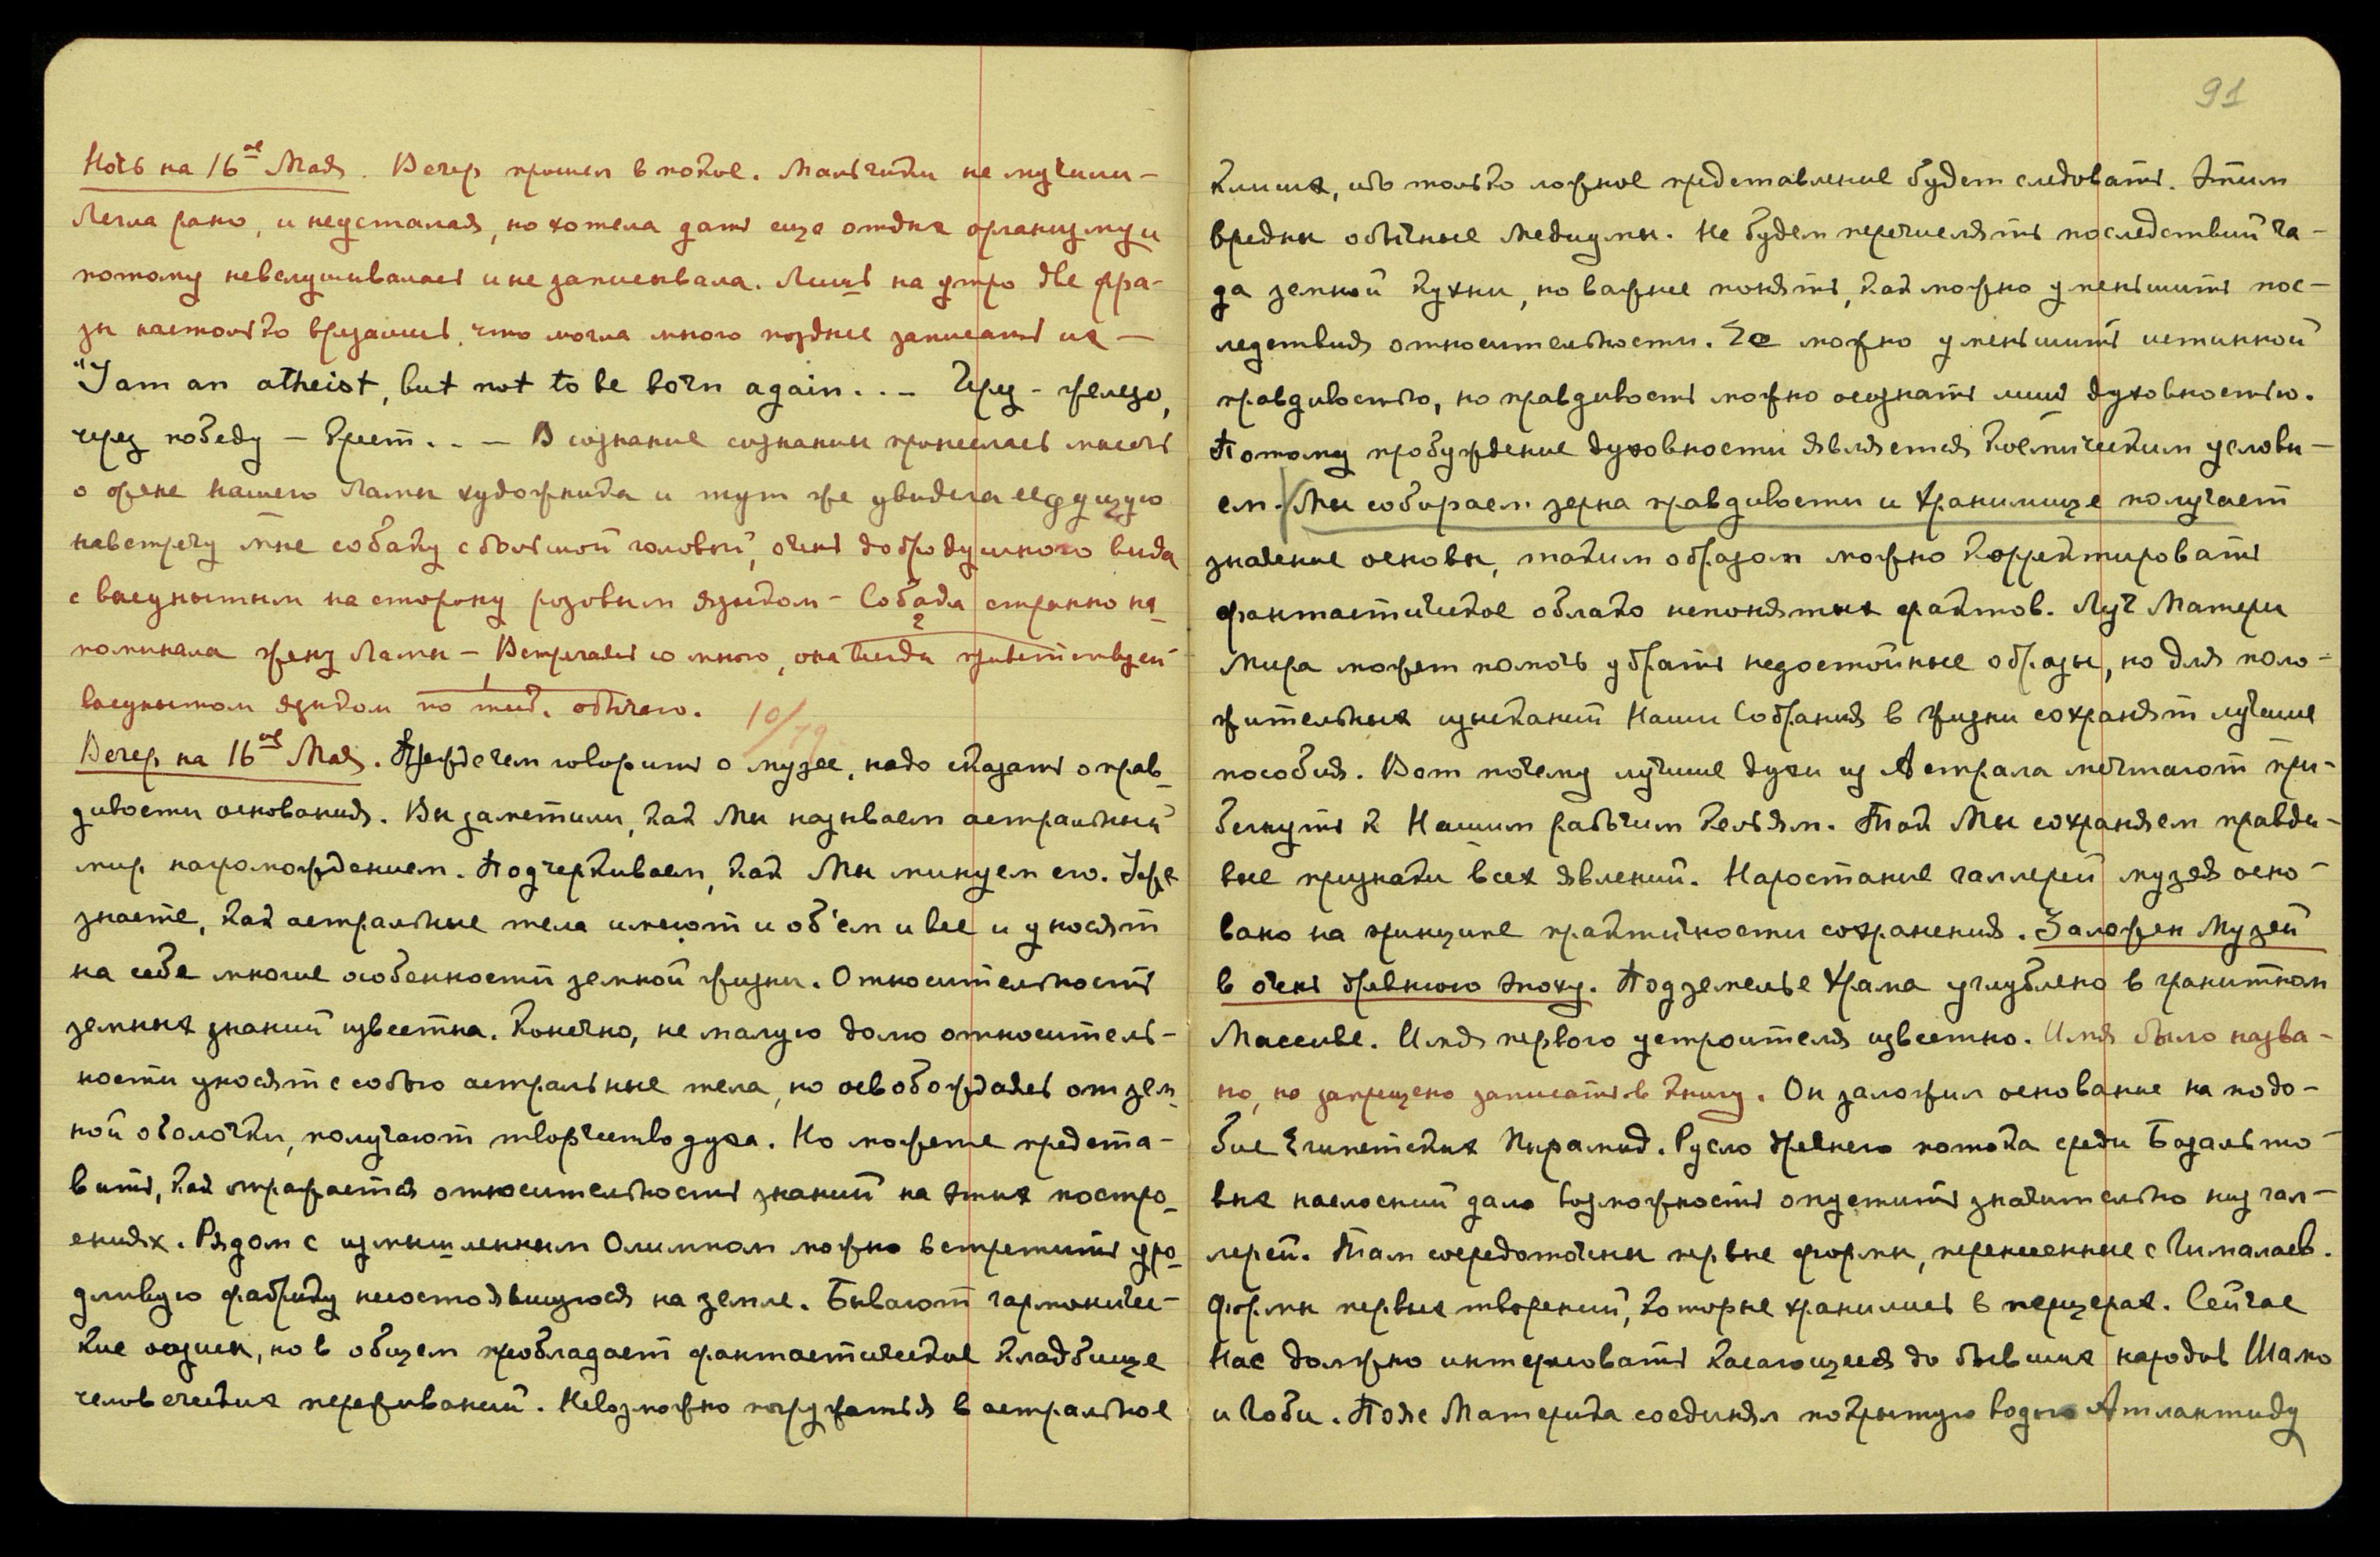 Ночь на 16ое Мая. Вечер прошел в покое. Мальчики не мучили –
Легла рано, и неусталая, но хотела дать еще отдых организму и
потому невслушивалась и не записывала. Лишь на утро две фра-
зы настолько врезались, что могла много позднее записать их —
"I am an atheist, but not to be born again... – Чрез – железо,
через победу – Крест... – В сознание сознания пронеслась мысль
о жене нашего Ламы художника и тут же увидела её идущую
навстречу мне собаку с большой головой, очень добродушного вида
с высунытым на сторону розовым языком – Собака странно на-
поминала жену Ламы – Встречаясь со мною, она всегда приветствует
высунытом языком по тиб. обычаю.
10/79
Вечер на 16ое Мая. Прежде чем говорить о музее, надо сказать о прав-
дивости основания. Вы заметили, как Мы называем астральный
мир нагромождением. Подчеркиваем, как Мы минуем его. Уже
знаете, как астральные тела имеют и об'ем и вес и уносят
на себе многие особенности земной жизни. Относительность
земных знаний известна. Конечно, не малую долю относитель-
ности уносят с собою астральные тела, но освобождаясь от зем-
ной оболочки, получают творчество духа. Но можете предста-
вить, как отражается относительность знаний на этих постро-
ениях. Рядом с измышленным Олимпом можно встретить уро-
дливую фабрику несостоявшуюся на земле. Бывают гармоничес-
кие оазисы, но в общем преобладает фантастическое кладбище
человеческих переживаний. Невозможно погружаться в астральное
91
клише, ибо только ложное представление будет следовать. Этим
вредны обычные медиумы. Не будем перечислять последствий ча-
да земной кухни, но важнее понять, как можно уменьшить пос-
ледствия относительности. Ее можно уменьшить истинной
правдивостью, но правдивость можно осознать лишь духовностью.
Потому пробуждение духовности является космическим услови-
ем. Мы собираем зерна правдивости и Хранилище получает
значение основы, таким образом можно корректировать
фантастическое облако непонятых фактов. Луч Матери
Мира может помочь убрать недостойные образы, но для поло-
жительных изысканий Наши Собрания в жизни сохранят лучшие
пособия. Вот почему лучшие духи из Астрала мечтают при-
бегнуть к Нашим рабочим кельям. Так Мы сохраняем правди-
вые признаки всех явлений. Наростание галлерей музея осно-
вано на принципе практичности сохранения. Заложен Музей
в очень древнюю эпоху. Подземелье Храма углублено в гранитном
Массиве. Имя первого устроителя известно. Имя было назва-
но, но запрещено записать в книгу. Он заложил основание на подо-
бие Египетских Пирамид. Русло древнего потока среди Базальто-
вых наслоений дало возможность опустить значительно низ гал-
лерей. Там сосредоточены первые формы, перенесенные с Гималаев.
Формы первых творений, которые хранились в пещерах. Сейчас
Нас должно интересовать касающееся до бывших народов Шамо
и Гоби. Пояс Материка соединял покрытую водою Атлантиду